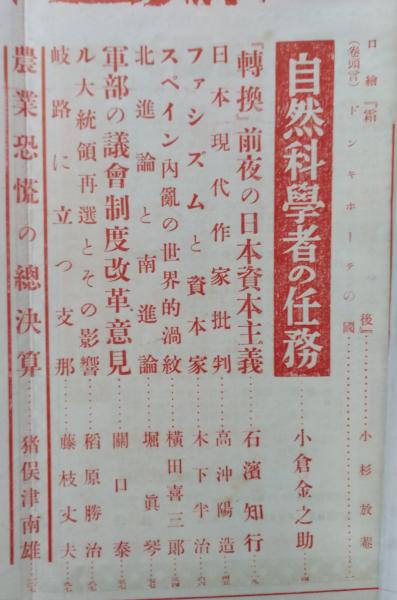 口繪『霜後』……小杉放菴
(卷頭言)ドンキホーテの國……一
自然科學者の任務……小倉金之助
『轉換』前夜の日本資本主義……石濱知行
日本現代作家批判……高沖陽造
ファシズムと資本家……木下半治
スペイン內亂の世界的渦紋……橫田喜三郎
北進論と南進論……堀眞琴
軍部の議會制度改革意見……關口泰
ル大統領再選とその影響……稻原勝治
岐路に立つ支那……藤枝丈夫
農業恐慌の總決算……猪俣津南雄